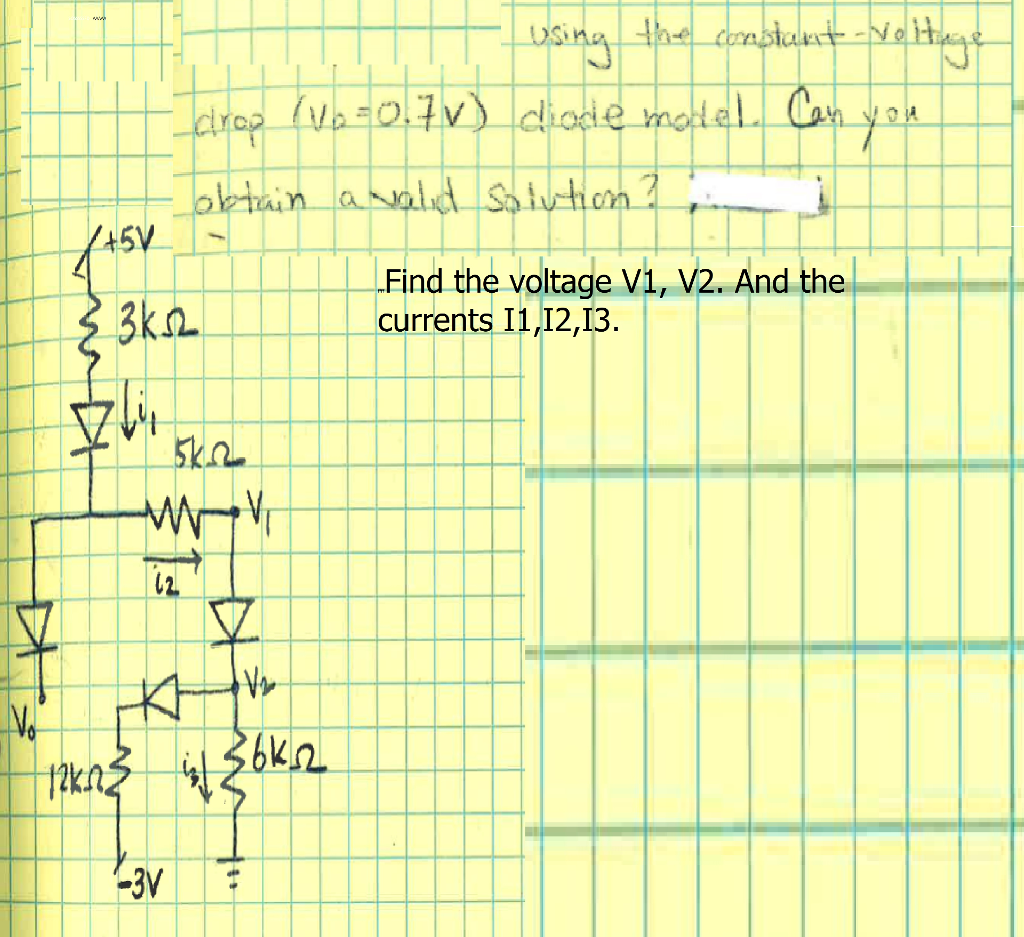 using the constant-voltage
drop (VD=0.7V) diode model. Can you
obtain a valid solution?
Find the voltage V1, V2. And the
currents I1,I2,I3.
+5V
3kΩ
i1
5kΩ
V1
i2
V2
Vo
12kΩ
i3
6kΩ
-3V